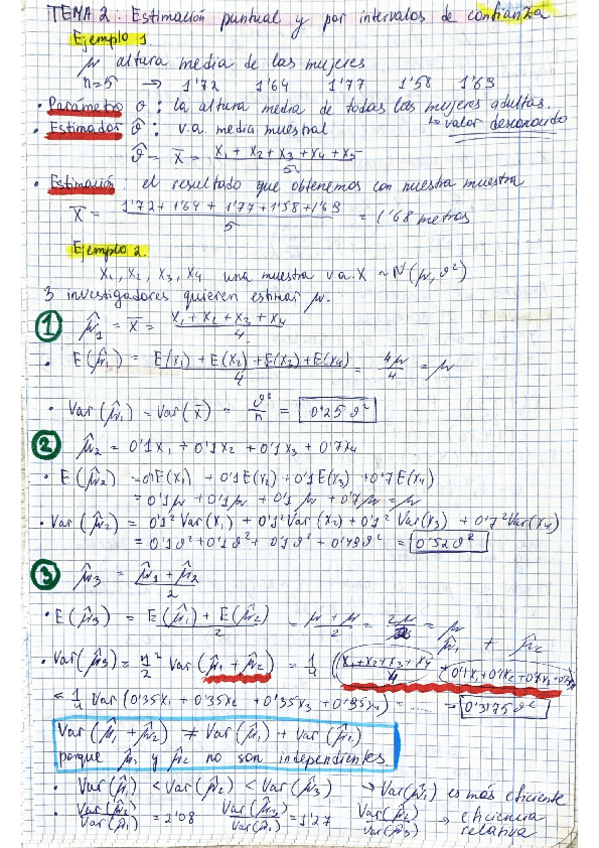 TEMA 2: Estimación puntual y por intervalos de confianza
Ejemplo 1.
μ altura media de las mujeres
n=5 → 1'72 1'64 1'77 1'58 1'69
• Parámetro θ: la altura media de todas las mujeres adultas.
↳ valor desconocido
• Estimador θ̂: v.a. media muestral
θ̂ = x̄ = (x₁ + x₂ + x₃ + x₄ + x₅)/5
• Estimación: el resultado que obtenemos con nuestra muestra
x̄ = (1'72 + 1'64 + 1'77 + 1'58 + 1'69)/5 = 1'68 metros
Ejemplo 2.
X₁, X₂, X₃, X₄ una muestra v.a. X ~ N(μ, σ²)
3 investigadores quieren estimar μ.
① μ̂₁ = x̄ = (x₁ + x₂ + x₃ + x₄)/4
• E(μ̂₁) = (E(x₁) + E(x₂) + E(x₃) + E(x₄))/4 = 4μ/4 = μ
• Var(μ̂₁) = Var(x̄) = σ²/n = 0'25σ²
② μ̂₂ = 0'1x₁ + 0'1x₂ + 0'1x₃ + 0'7x₄
• E(μ̂₂) = 0'1E(x₁) + 0'1E(x₂) + 0'1E(x₃) + 0'7E(x₄)
= 0'1μ + 0'1μ + 0'1μ + 0'7μ = μ
• Var(μ̂₂) = 0'1² Var(x₁) + 0'1² Var(x₂) + 0'1² Var(x₃) + 0'7² Var(x₄)
= 0'1σ² + 0'1σ² + 0'1σ² + 0'49σ² = 0'52σ²
③ μ̂₃ = (μ̂₁ + μ̂₂)/2
• E(μ̂₃) = (E(μ̂₁) + E(μ̂₂))/2 = (μ + μ)/2 = 2μ/2 = μ
μ̂₁ + μ̂₂
• Var(μ̂₃) = 1/2² Var(μ̂₁ + μ̂₂) = 1/4 ((x₁+x₂+x₃+x₄)/4 + 0'1x₁+0'1x₂+0'1x₃+0'7x₄)
= 1/4 Var(0'35x₁ + 0'35x₂ + 0'35x₃ + 0'95x₄) = ...... → 0'3175σ²
Var(μ̂₁ + μ̂₂) ≠ Var(μ̂₁) + Var(μ̂₂)
porque μ̂₁ y μ̂₂ no son independientes
• Var(μ̂₁) < Var(μ̂₂) < Var(μ̂₃) → Var(μ̂₁) es más eficiente
• Var(μ̂₂)/Var(μ̂₁) = 2'08 Var(μ̂₃)/Var(μ̂₁) = 1'27 Var(μ̂₂)/Var(μ̂₃) → eficiencia relativa